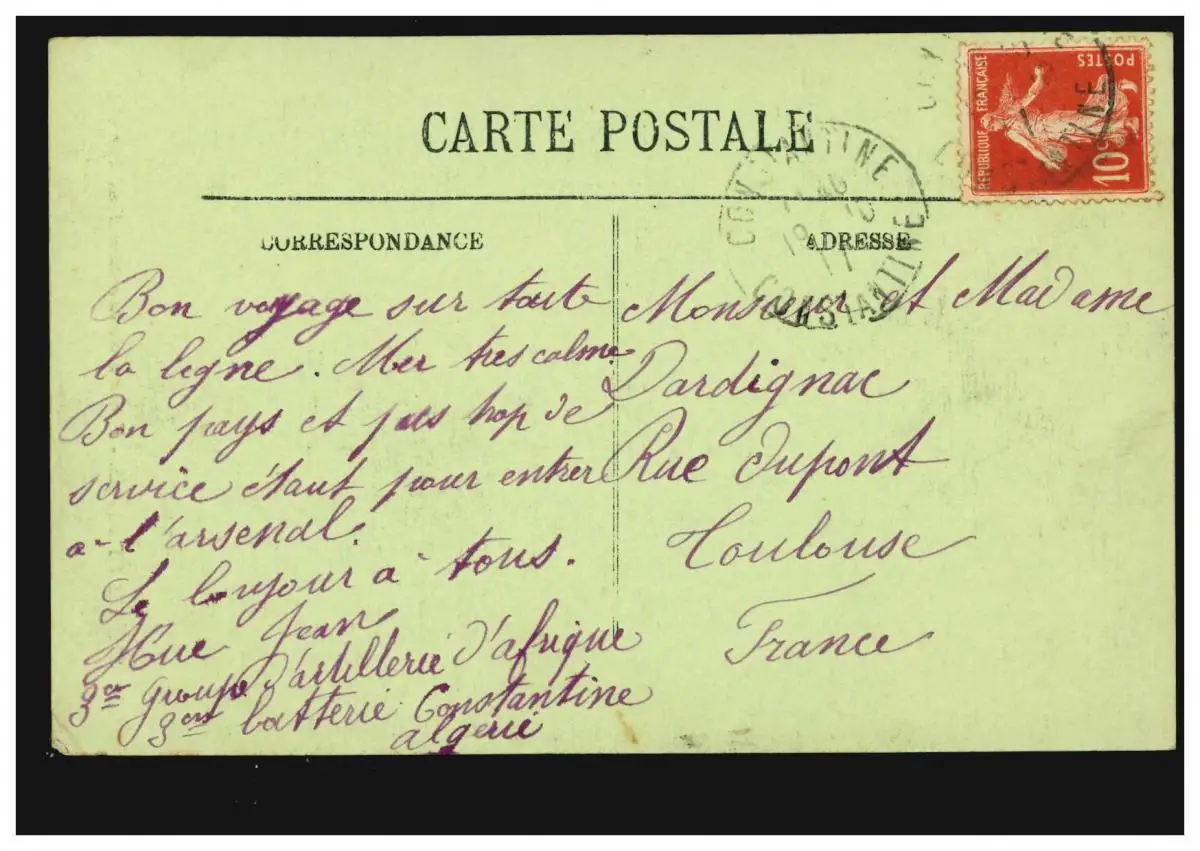 CARTE POSTALE
RÉPUBLIQUE FRANÇAISE
POSTES
10c
CONSTANTINE
CONSTANTINE
CORRESPONDANCE
Bon voyage sur toute
la ligne. Mer tres calme
Bon pays et pas trop de
service étant pour entrer
a l'arsenal.
Le bonjour à tous.
Hue Jean
3em groupe d'artillerie d'afrique
3em batterie Constantine
algerie
ADRESSE
Monsieur et Madame
Dardignac
Rue Dupont
Toulouse
France